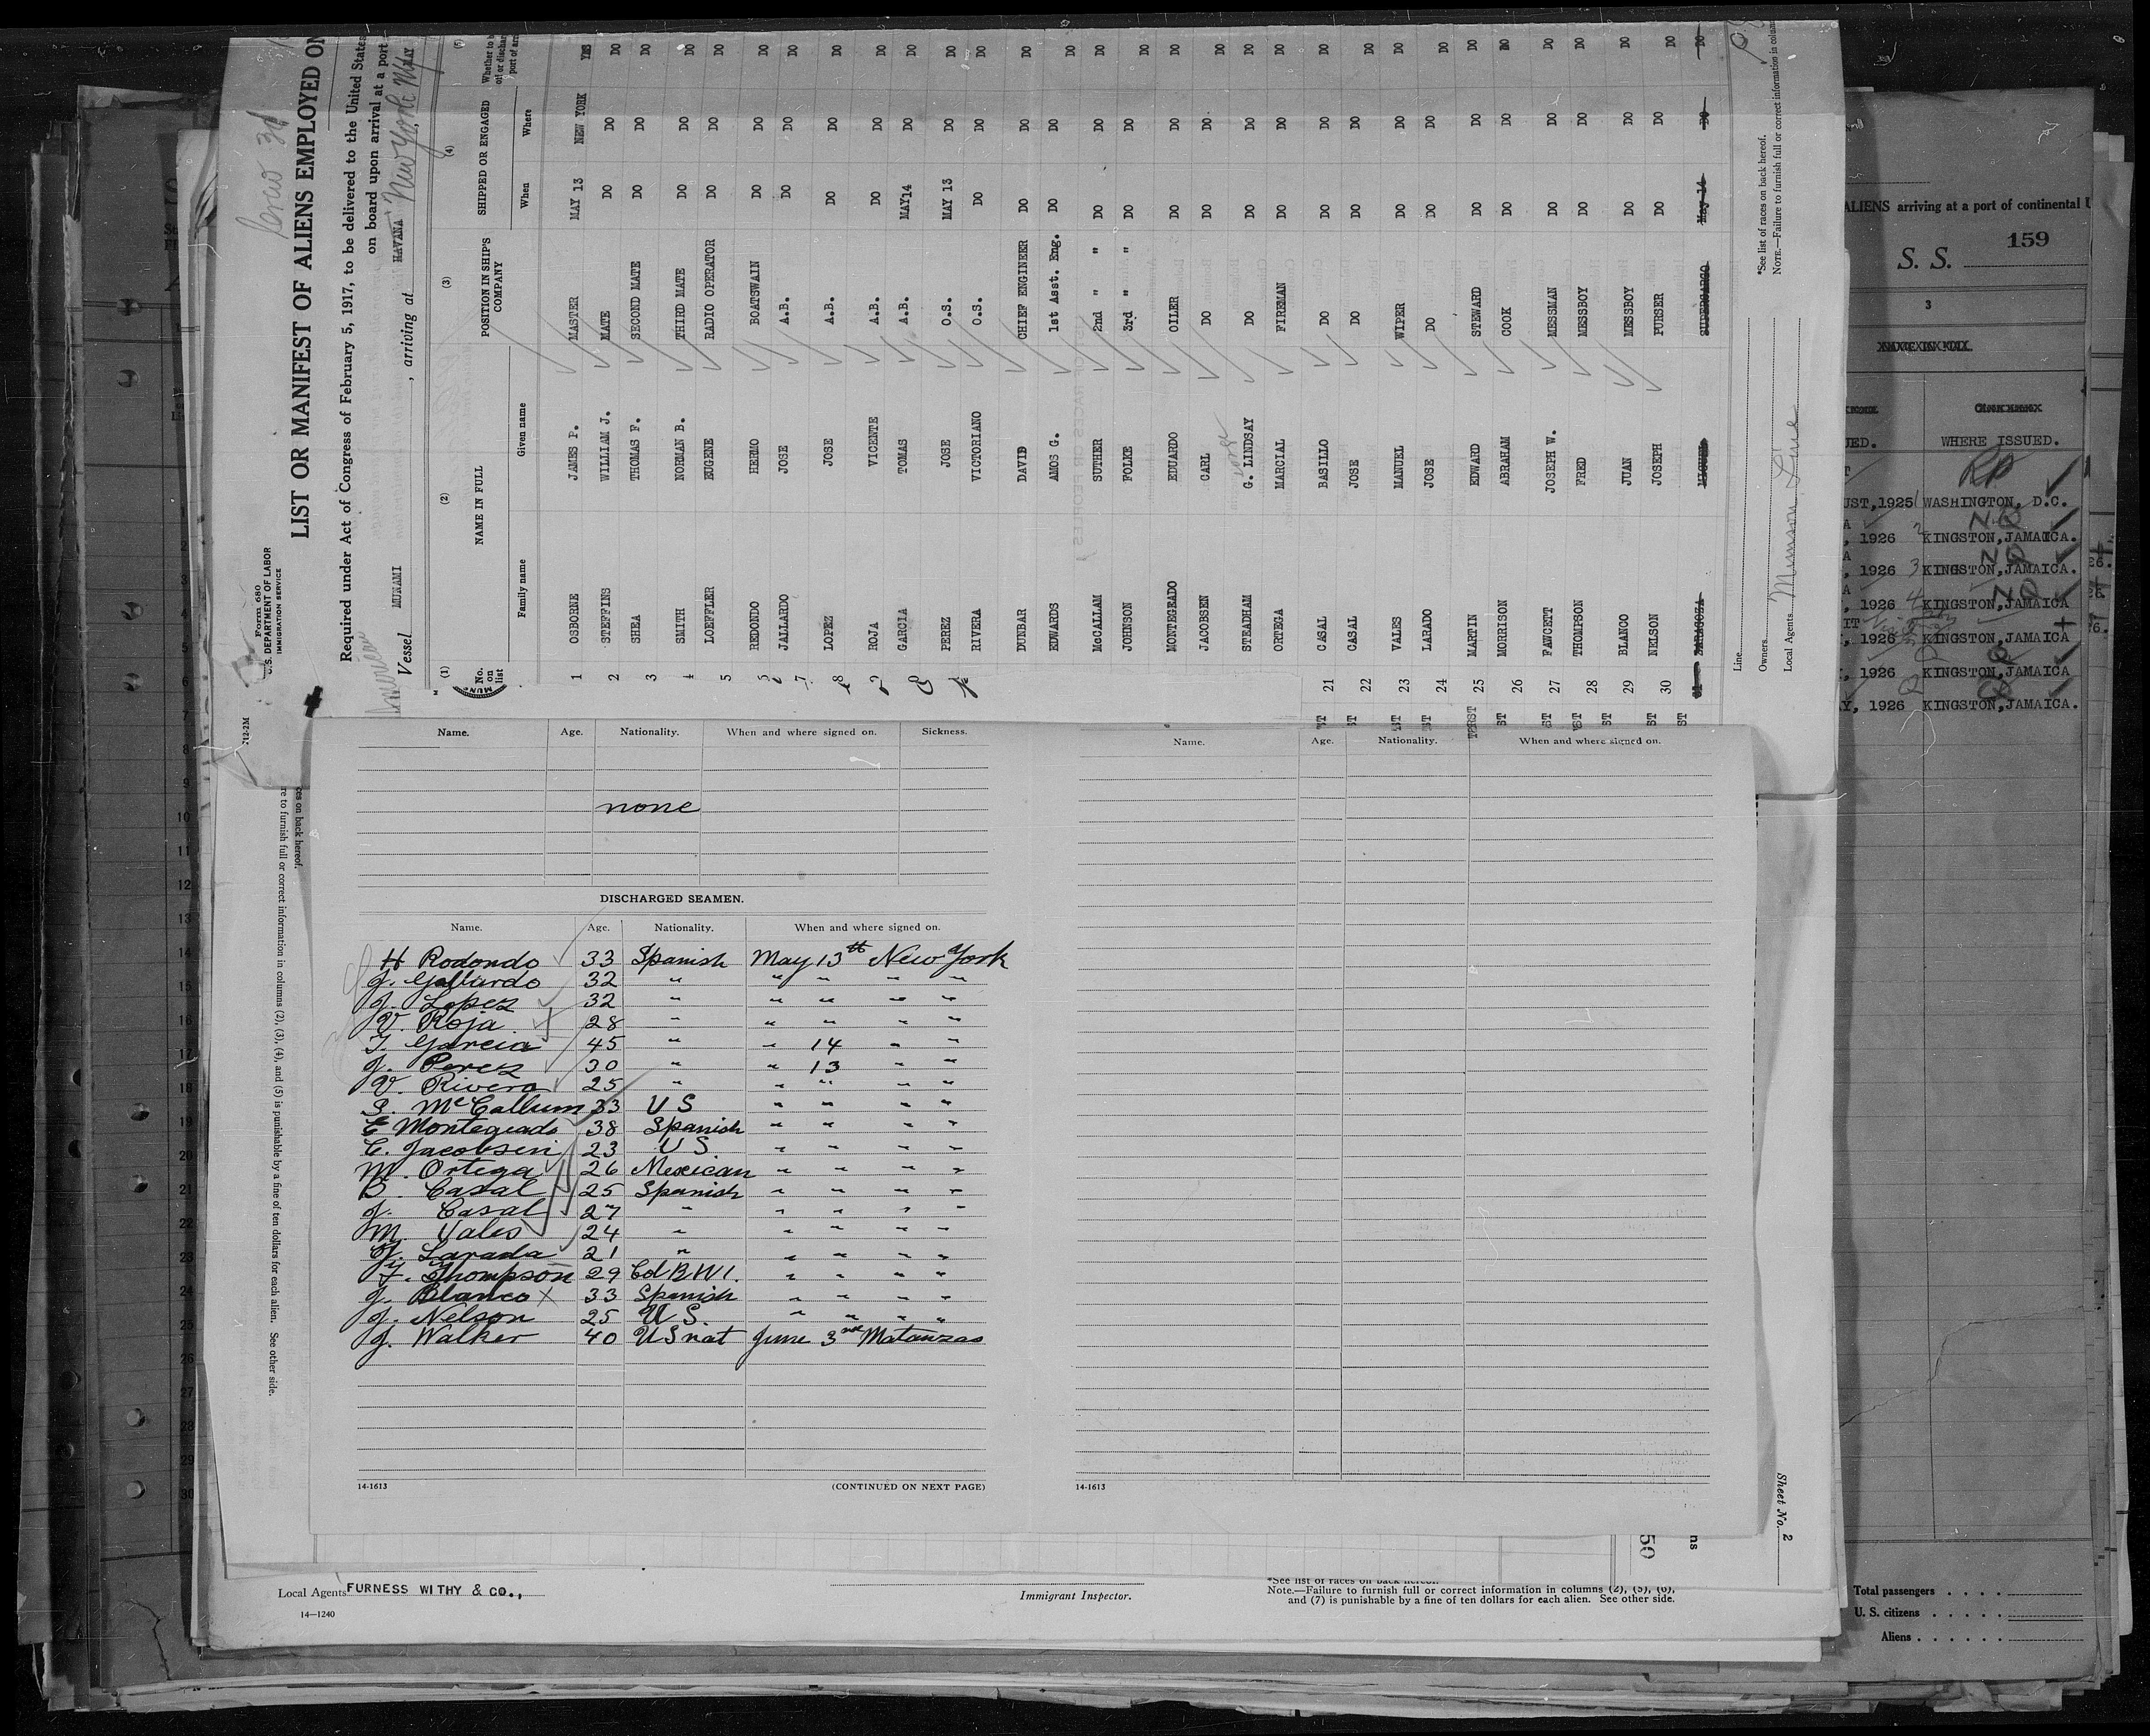 Form 680
U.S. DEPARTMENT OF LABOR
IMMIGRATION SERVICE
Crew 3d
LIST OR MANIFEST OF ALIENS EMPLOYED ON
Required under Act of Congress of February 5, 1917, to be delivered to the United States
on board upon arrival at a port
American
Vessel MUNAMI, arriving at HAVANA New York NY MAY
(1) (2) (3) (4) (5)
No. on list NAME IN FULL POSITION IN SHIP'S COMPANY SHIPPED OR ENGAGED
Family name Given name When Where
1 OSBORNE JAMES P. MASTER MAY 13 NEW YORK YES
2 STEFFINS WILLIAM J. MATE DO DO DO
3 SHEA THOMAS F. SECOND MATE DO DO DO
4 SMITH NORMAN B. THIRD MATE DO DO DO
5 LOEFFLER EUGENE RADIO OPERATOR DO DO DO
REDONDO HERMO BOATSWAIN DO DO DO
JALLARDO JOSE A.B. DO DO DO
LOPEZ JOSE A.B. DO DO DO
ROJA VICENTE A.B. DO DO DO
GARCIA TOMAS A.B. MAY14 DO DO
PEREZ JOSE O.S. MAY 13 DO DO
RIVERA VICTORIANO O.S. DO DO DO
DUNBAR DAVID CHIEF ENGINEER DO DO DO
EDWARDS AMOS G. 1st Asst. Eng. DO DO DO
McCALLAM SUTHER 2nd " " DO DO DO
JOHNSON FOLKE 3rd " " DO DO DO
MONTEGEADO EDUARDO OILER DO DO DO
JACOBSEN CARL DO DO DO DO
STEADHAM G. LINDSAY DO DO DO DO
George
ORTEGA MARCIAL FIREMAN DO DO DO
21 CASAL BASILLO DO DO DO DO
22 CASAL JOSE DO DO DO DO
23 VALES MANUEL WIPER DO DO DO
24 LARADO JOSE DO DO DO DO
25 MARTIN EDWARD STEWARD DO DO DO
26 MORRISON ABRAHAM COOK DO DO DO
27 FAWCETT JOSEPH W. MESSMAN DO DO DO
28 THOMPSON FRED MESSBOY DO DO DO
29 BLANCO JUAN MESSBOY DO DO DO
30 NELSON JOSEPH PURSER DO DO DO
31 ZARAGOZA MIGUEL SUPERCARGO May 14 DO DO
Line
Owners
Local Agents Munson Line
*See list of races on back hereof.
NOTE.—Failure to furnish full or correct information in colum
Name. Age. Nationality. When and where signed on. Sickness.
none
DISCHARGED SEAMEN.
Name. Age. Nationality. When and where signed on.
H Rodondo 33 Spanish May 13th New York
J. Gallardo 32 " " " " "
J. Lopez 32 " " " " "
V. Roja 28 " " " " "
T. Garcia 45 " " 14 " "
J. Perez 30 " " 13 " "
V. Rivera 25 " " " " "
S. McCallum 33 U S " " " "
E Montegeado 38 Spanish " " " "
C. Jacobsen 23 U S. " " " "
M. Ortega 26 Mexican " " " "
B. Casal 25 Spanish " " " "
J. Casal 27 " " " " "
M. Vales 24 " " " " "
J. Larada 21 " " " " "
F. Thompson 29 Cd B W I. " " " "
J. Blanco X 33 Spanish " " " "
J. Nelson 25 U S. " " " "
J. Walker 40 U S nat June 3rd Matanzas
14-1613 (CONTINUED ON NEXT PAGE)
Name. Age. Nationality. When and where signed on.
14-1613
Sheet No. 2
50
Local Agents FURNESS WITHY & CO.,
14—1240
Immigrant Inspector.
*See list of races on back hereof.
Note.—Failure to furnish full or correct information in columns (2), (5), (6),
and (7) is punishable by a fine of ten dollars for each alien. See other side.
ces on back hereof.
re to furnish full or correct information in columns (2), (3), (4), and (5) is punishable by a fine of ten dollars for each alien. See other side.
ALIENS arriving at a port of continental U
S. S. 159
3
WHERE ISSUED.
RP
UST,1925 WASHINGTON, D.C.
, 1926 KINGSTON,JAMAICA.
, 1926 KINGSTON,JAMAICA.
, 1926 KINGSTON,JAMAICA
, 1926 KINGSTON,JAMAICA
, 1926 KINGSTON,JAMAICA
Y, 1926 KINGSTON,JAMAICA.
Total passengers
U. S. citizens
Aliens